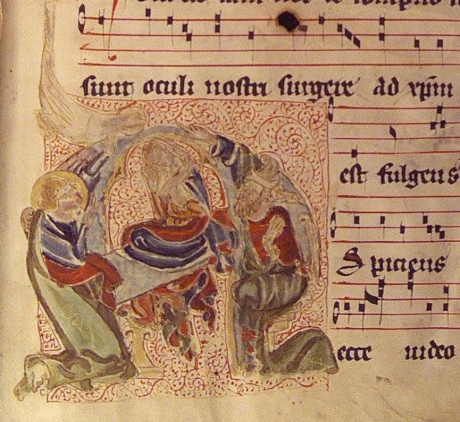 sunt oculi nostri surgere ad xpm
est fulgens
Spiciens
ecce video